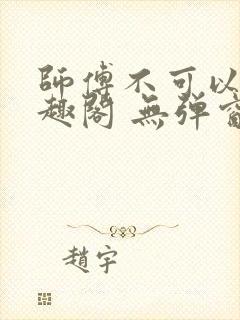 師傅不可以
趣閣 無弹窗
趙宇